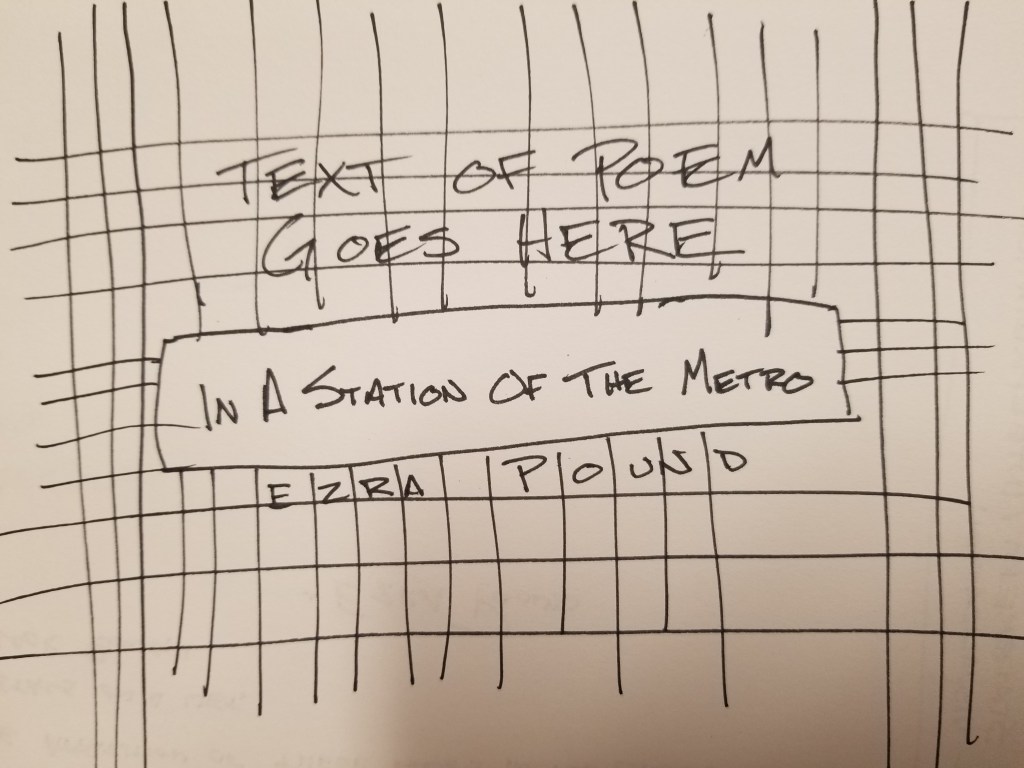 TEXT OF POEM
GOES HERE
IN A STATION OF THE METRO
EZRA POUND